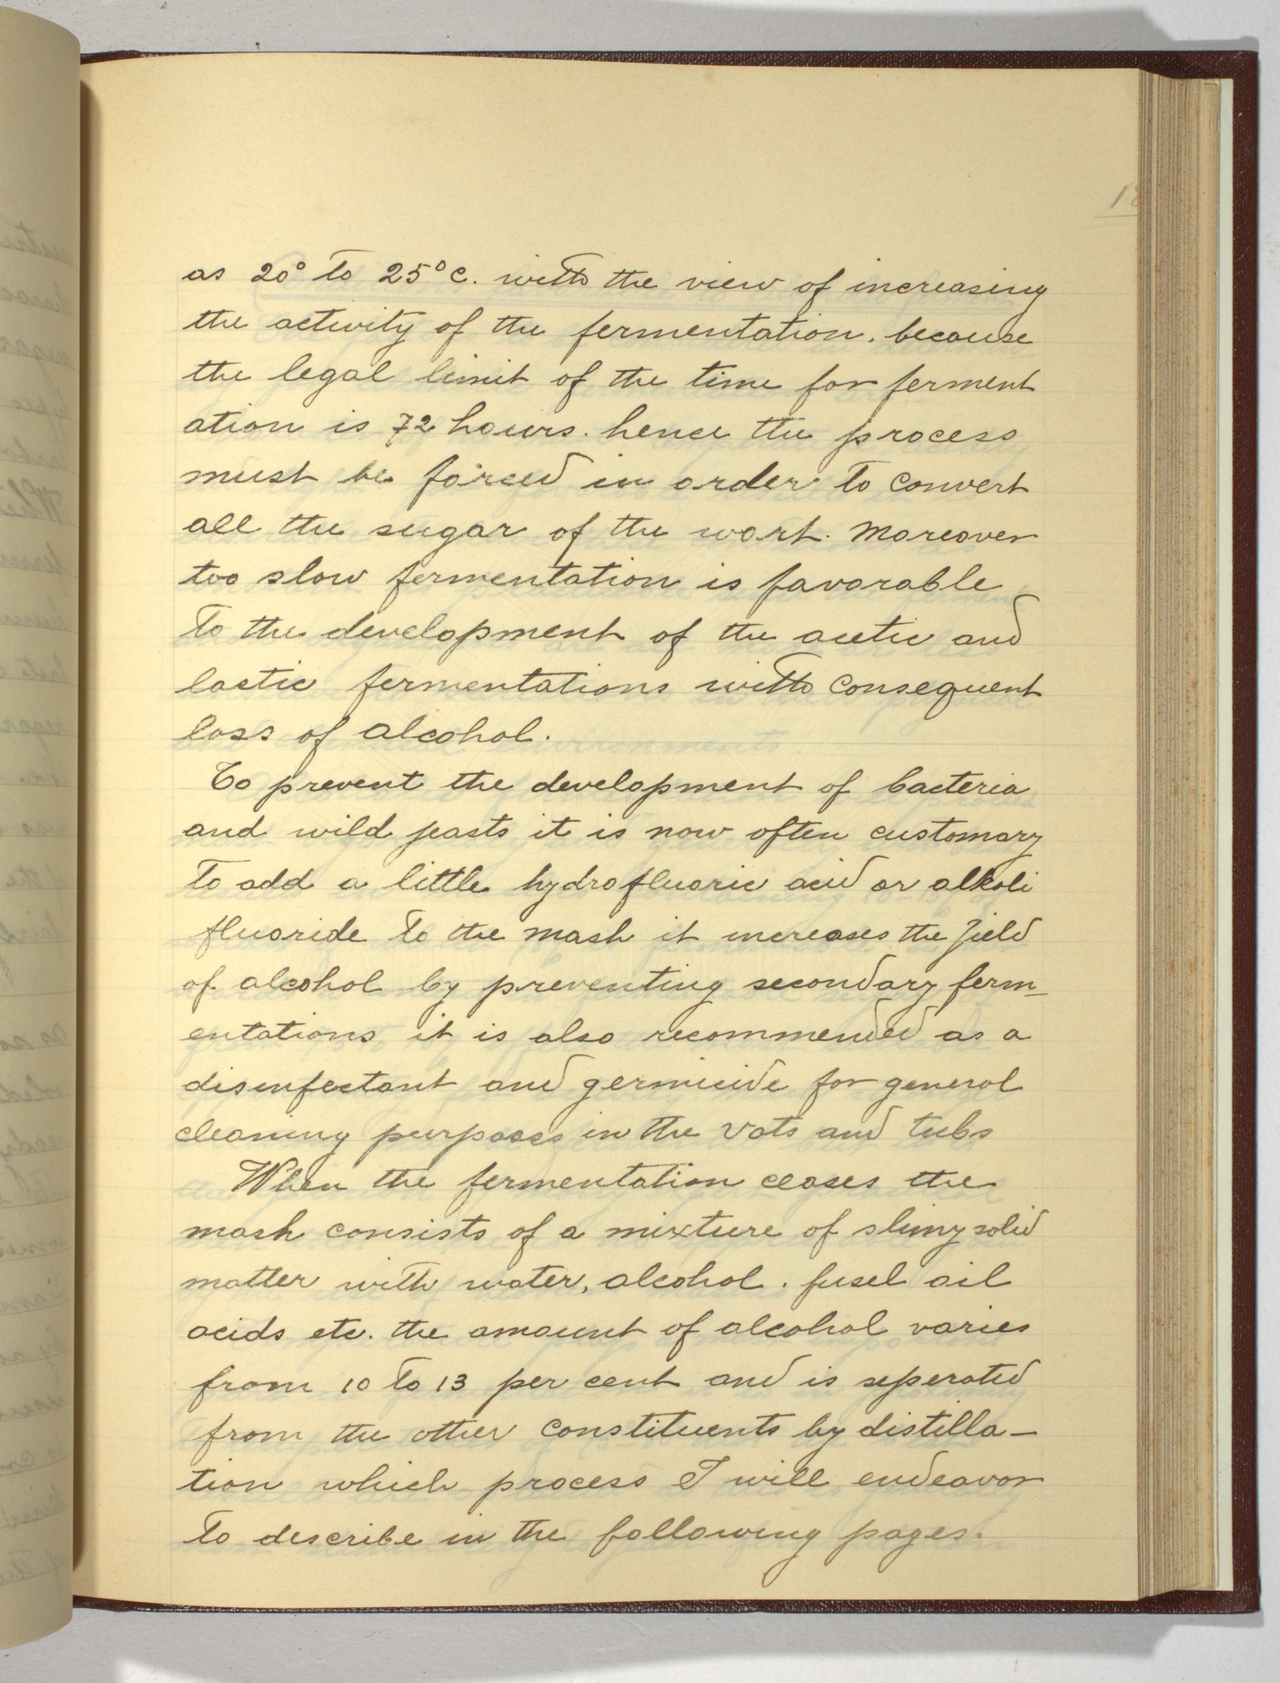 as 20° to 25° C. with the view of increasing
the activity of the fermentation, because
the legal limit of the time for ferment
ation is 72 hours. hence the process
must be forced in order to convert
all the sugar of the wort. Moreover
too slow fermentation is favorable
to the development of the acetic and
lactic fermentations with consequent
loss of alcohol.
To prevent the development of bacteria
and wild yeasts it is now often customary
to add a little hydrofluoric acid or alkali
fluoride to the mash it increases the yield
of alcohol by preventing secondary ferm-
entations it is also recommended as a
disinfectant and germicide for general
cleaning purposes in the vats and tubs
When the fermentation ceases the
mash consists of a mixture of slimy solid
matter with water, alcohol, fusel oil
acids etc. the amount of alcohol varies
from 10 to 13 per cent and is seperated
from the other constituents by distilla-
tion which process I will endeavor
to describe in the following pages.